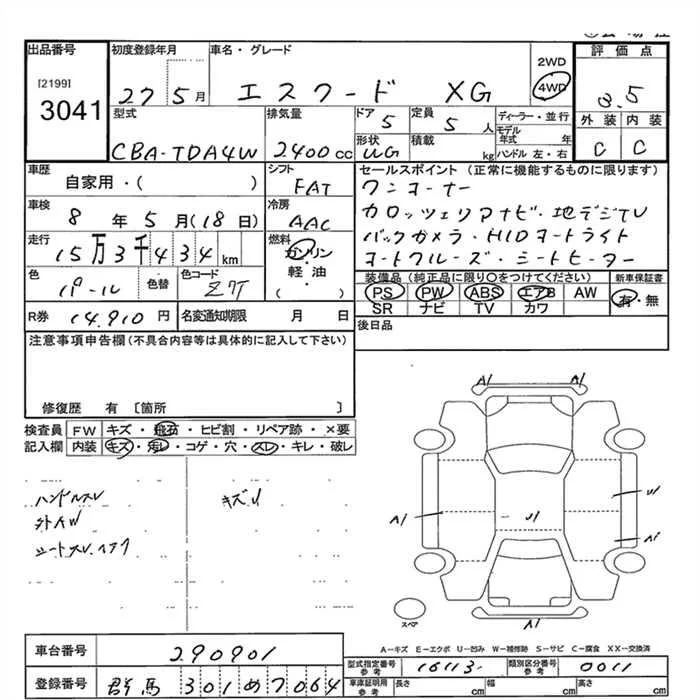 出品番号 初度登録年月 車名・グレード 2WD 評価点
[2199] 3041 27 5月 エスクード XG 4WD 3.5
型式 排気量 ドア 5 定員 5人 ディーラー・並行 外装 内装
CBA-TDA4W 2400cc 形状 WG 積載 kg モデル年式 年 ハンドル 左・右 C C
車歴 自家用・( ) シフト FAT セールスポイント (正常に機能するものに限ります)
ワンオーナー
車検 8年5月(18日) 冷房 AAC カロッツェリアナビ・地デジTV
バックカメラ・HIDオートライト
走行 15万3千434km 燃料 ガソリン・軽油 ( ) オートクルーズ・シートヒーター
色 パール 色替 色コード Z7T 装備品 (純正品に限り〇をつけてください) 新車保証書
PS PW ABS エアB AW 有・無
SR ナビ TV カワ
R券 14,910円 名変通知期限 月 日 後日品
注意事項申告欄(不具合内容等は具体的に記入して下さい)
修復歴 有 〔箇所 〕
検査員 FW キズ・飛石・ヒビ割・リペア跡・×要
記入欄 内装 キズ・汚レ・コゲ・穴・スレ・キレ・破レ
ハンドルスレ キズU
外AW
A1 A1
A1 U1 U1
A1
A1
スペア
A-キズ E-エクボ U-凹み W-補修跡 S-サビ C-腐食 XX-交換済
車台番号 290901 型式指定番号 参考 16113 類別区分番号 参考 0011
登録番号 群馬 301 め 7064 車庫証明用 参考 長さ cm 幅 cm 高さ cm